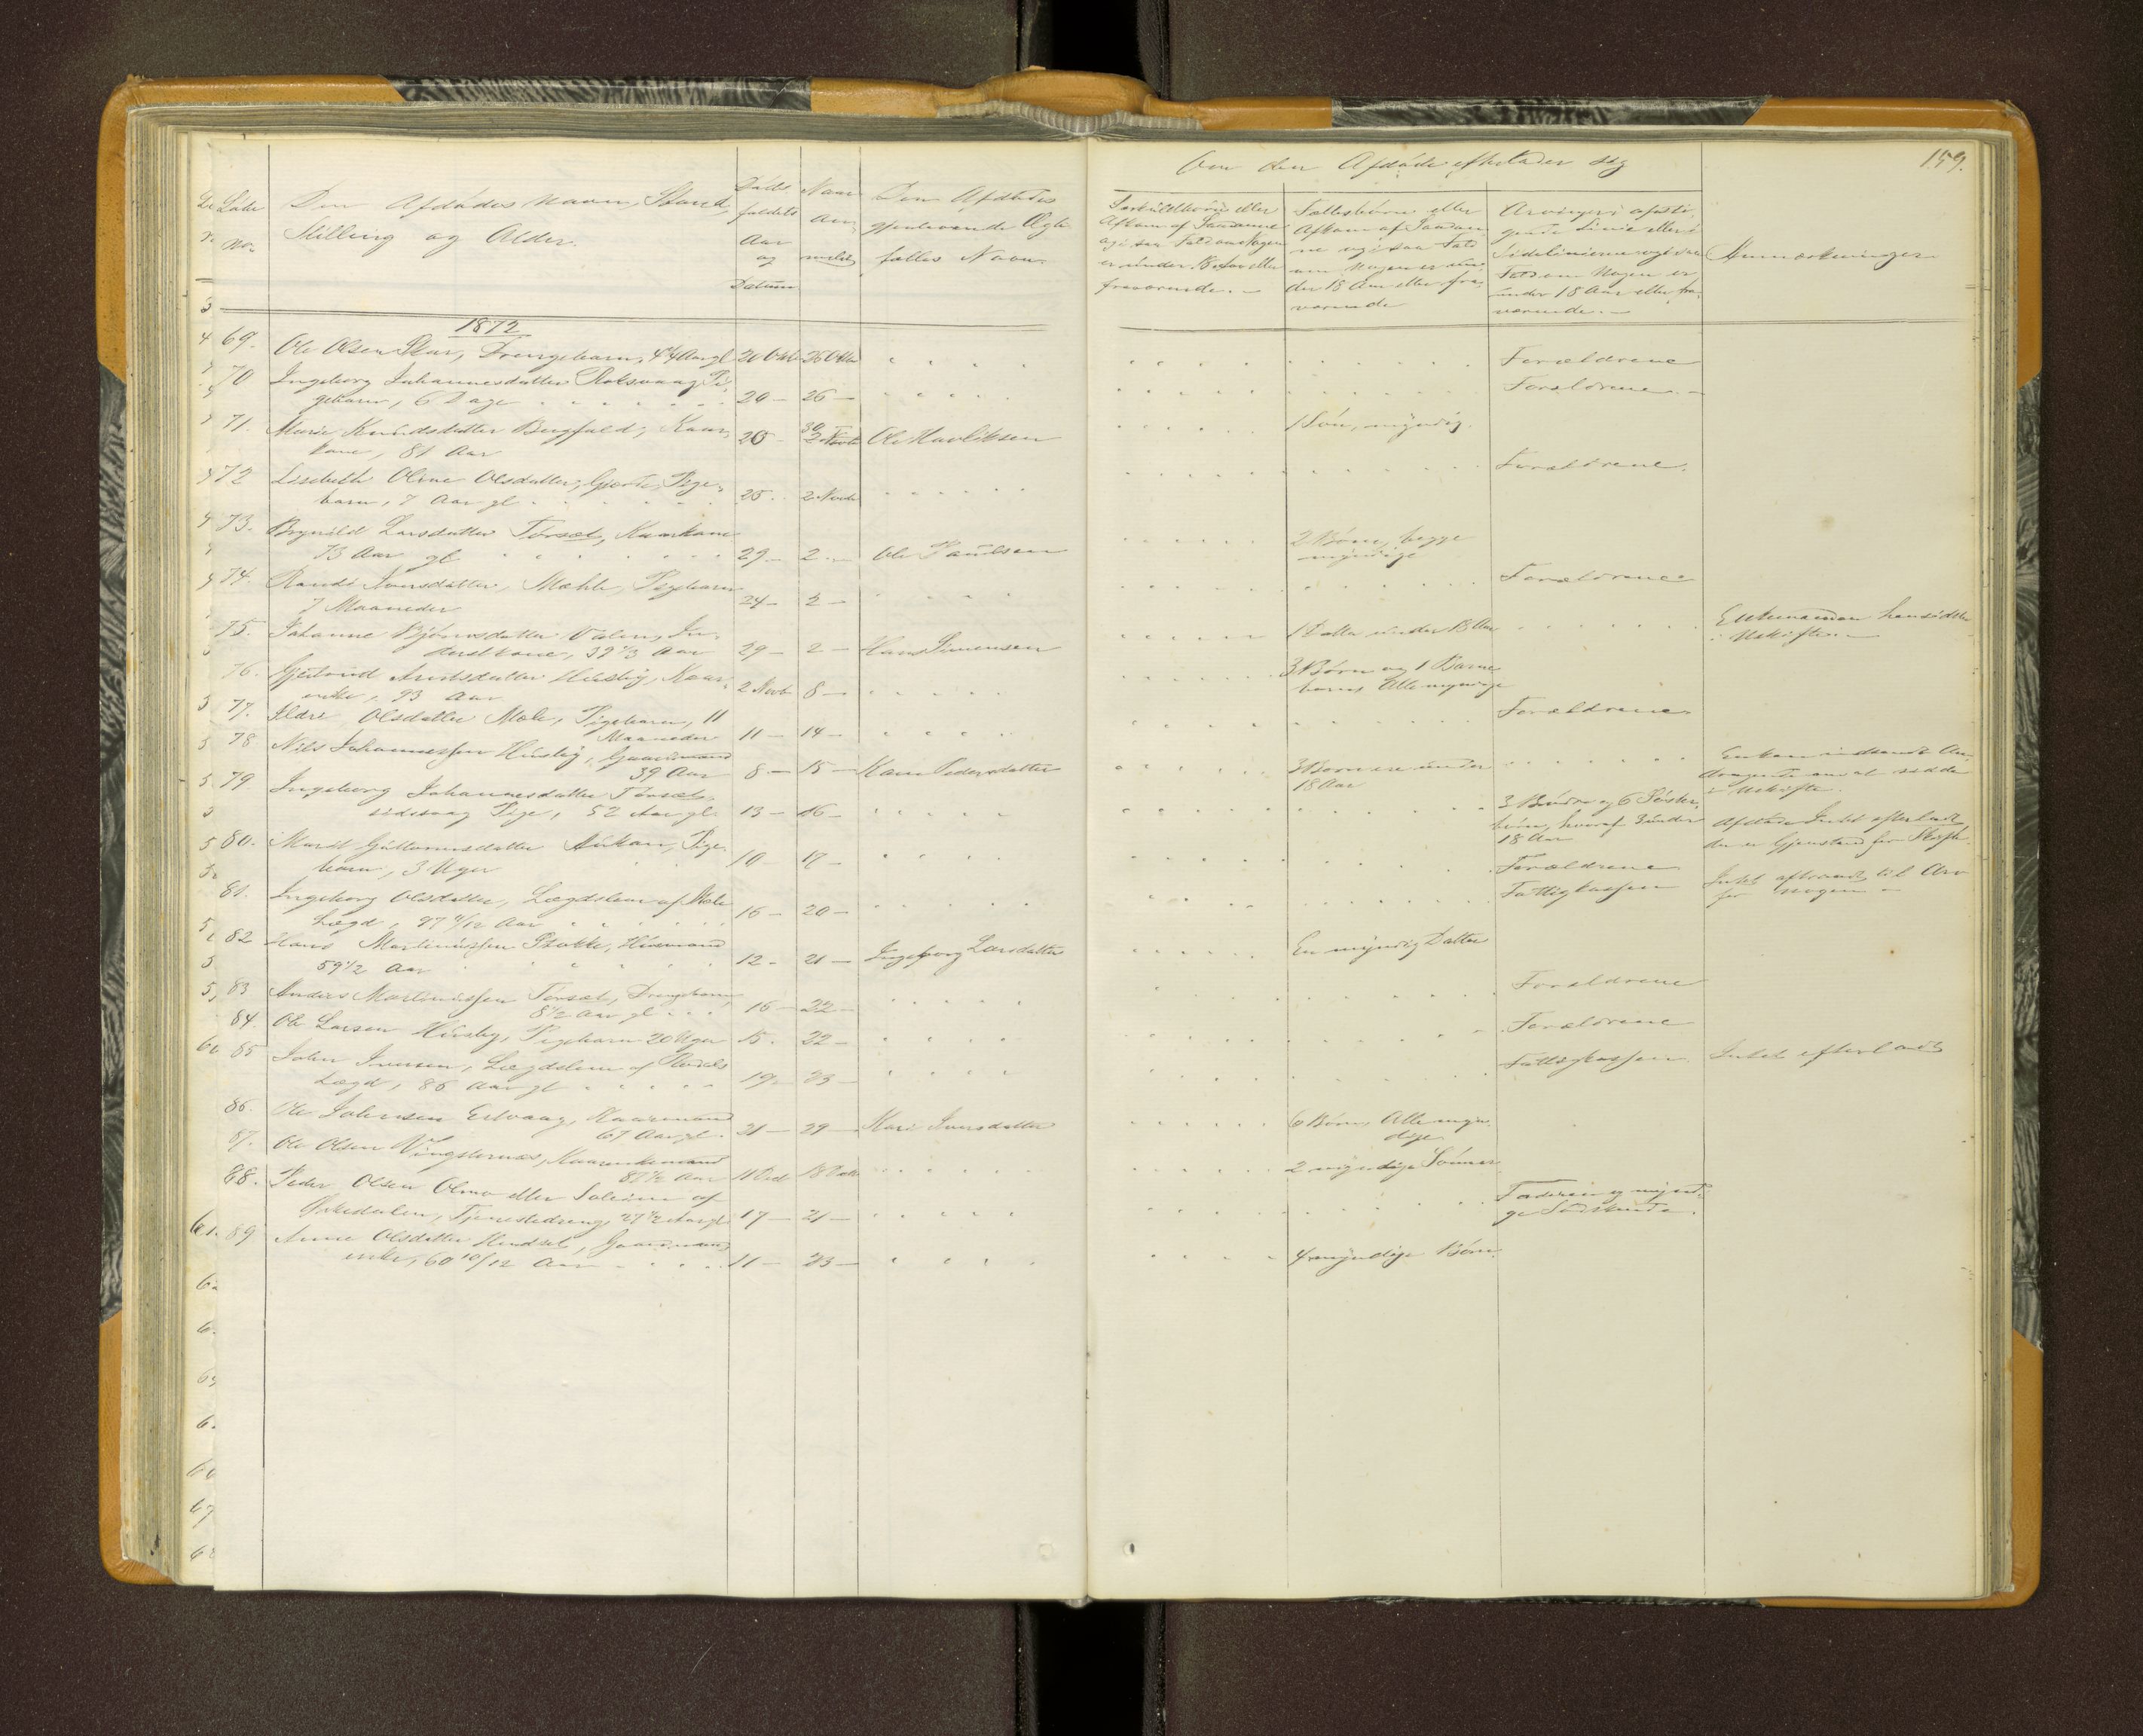 159.
Løbe No.
Den Afdødes Navn, Stand,
Stilling og Alder.
Døds-
faldets
Aar
og
Datum
Naar
An-
meldt
Den Afdødes
gjenlevende Ægte-
fælles Navn.
Om den Afdøde efterlader sig
Særkuldbørn eller
Afkom af Saadanne
og i saa Fald om Nogen
er under 18 Aar eller
fraværende.
Fællesbørn eller
Afkom af Saadan-
ne og i saa Fald
om Nogen er un-
der 18 Aar eller fra-
værende
Arvinger i opsti-
gende Linie eller i
Sidelinierne og i saa
Fald om Nogen er
under 18 Aar eller fra-
værende.
Anmærkninger
1872
69. Ole Olsen Skar, Drengebarn, Aar gl 20 Oktb 26 Oktbr Forældrene
70 Ingeborg Johannesdatter Roksvaag Pi-
gebarn, 6 Dage 20 - 26 - Forældrene. -
71. Marie Knudsdatter Bergfald, Kaar-
kone, 81 Aar 20 - 30 Ole Havliksen 1 Søn, myndig.
72 Lisebeth Oline Olsdatter, Gjøvte, Pige-
barn, 7 Aar gl 25. 2 Novbr Forældrene.
73. Brynild Larsdatter Torsæt, Kaarkone
73 Aar gl 29 - 2 - Ole Paulsen 2 Børn, begge
myndige
74. Randi Iversdatter, Mæhle, Pigebarn
7 Maaneder 24 - 2 - Forældrene
75. Johanne Bjørnsdatter Valen, In-
derstkone, 39 1/3 Aar 29 - 2 - Hans Simensen 1 Datter under 18 Aar Enkemanden hensidder
i Uskifte. -
76. Gjertrud Arntsdatter Husby, Kaar-
enke, 93 Aar 2 Novb 8 - 3 Børn og 1 Barne-
barn Alle myndige
77. Ildri Olsdatter Mæle, Pigebarn, 11
Maaneder 11 - 14 - Forældrene
78 Nils Johannessen Husby, Gaardmand
39 Aar 8 - 15 - Kari Pedersdatter 3 Børn under
18 Aar Enken indsendt An-
dragende om at sidde
i Uskifte.
79. Ingeborg Johannesdatter Torsæt,
Pige, 52 Aar gl. 13 - 16 - 3 Brødre og 6 Søster-
børn, hvoraf 3 under
18 Aar Afdøde Intet efterladt
der er Gjenstand for Skifte.
80. Marit Guttormsdatter Aukan, Pige-
barn, 3 Uger 10 - 17 - Forældrene
81. Ingeborg Olsdatter, Lægdslem af Mæle
Lægd, Aar 16 - 20 - Fattigkassen Intet at Arv
for nogen -
82 Hans Martinussen Stokke, Huusmand
59 1/2 Aar 12 - 21 - Ingeborg Larsdatter En myndig Datter
83 Anders Martinussen Torsæt, Drengebarn
8 1/2 Aar gl 16 - 22 - Forældrene
84. Ole Larsen Husby, Pigebarn 20 Uger 15. 22 - Forældrene
85 John Iversen, Lægdslem af
Lægd, 86 Aar gl 19 - 23 - Fattigkassen Intet efterladt
86. Ole Johnsen Ertvaag, Kaarmand
67 Aar gl. 21 - 29 - Kari Iversdatter 6 Børn, Alle myn-
dige
87. Ole Olsen Vingsternæs, Kaarenkemand
87 1/2 Aar 11 Decb 18 Decb 2 myndige Sønner
88. Peder Olsen Olmo eller Solem af
Orkedalen, Tjenestedreng, 27 1/2 Aar gl 17 - 21 - Faderen og myndi-
ge Sødskende.
89 Anne Olsdatter Hendset, Gaardmands-
enke, 60 10/12 Aar 11 - 23 - 4 myndige Børn.